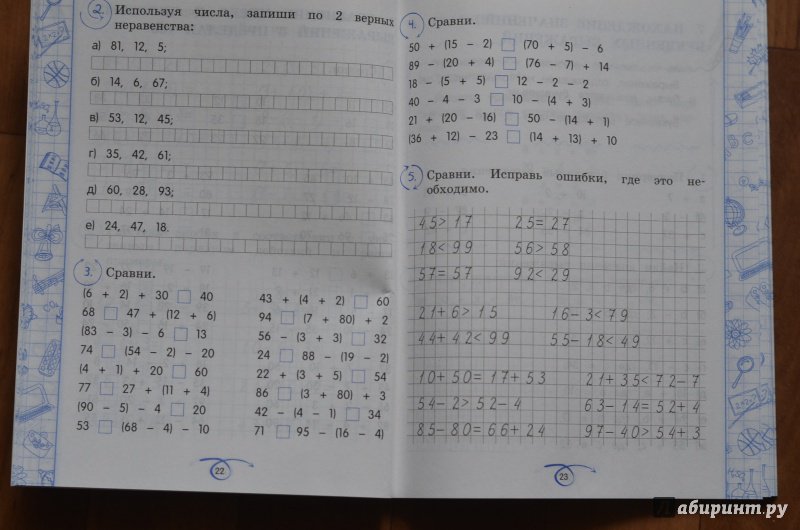 2. Используя числа, запиши по 2 верных
неравенства:
а) 81, 12, 5;
б) 14, 6, 67;
в) 53, 12, 45;
г) 35, 42, 61;
д) 60, 28, 93;
е) 24, 47, 18.
3. Сравни.
(6 + 2) + 30 □ 40
68 □ 47 + (12 + 6)
(83 − 3) − 6 □ 13
74 □ (54 − 2) − 20
(4 + 1) + 20 □ 60
77 □ 27 + (11 + 4)
(90 − 5) − 4 □ 20
53 □ (68 − 4) − 10
43 + (4 + 2) □ 60
94 □ (7 + 80) + 2
56 − (3 + 3) □ 32
24 □ 88 − (19 − 2)
22 + (3 + 5) □ 54
86 □ (3 + 80) + 3
42 − (4 − 1) □ 34
71 □ 95 − (16 − 4)
22
4. Сравни.
50 + (15 − 2) □ (70 + 5) − 6
89 − (20 + 4) □ (76 − 7) + 14
18 − (5 + 5) □ 12 − 2 − 2
40 − 4 − 3 □ 10 − (4 + 3)
21 + (20 − 16) □ 50 − (14 + 1)
(36 + 12) − 23 □ (14 + 13) + 10
5. Сравни. Исправь ошибки, где это не-
обходимо.
45 > 17 25 = 27
18 < 99 56 > 58
57 = 57 92 < 29
21 + 6 > 15 16 − 3 < 79
44 + 42 < 99 55 − 18 < 49
10 + 50 = 17 + 53 21 + 35 < 72 − 7
54 − 2 > 52 − 4 63 − 14 = 52 + 4
85 − 80 = 66 + 24 97 − 40 > 54 + 3
23
Лабиринт.ру